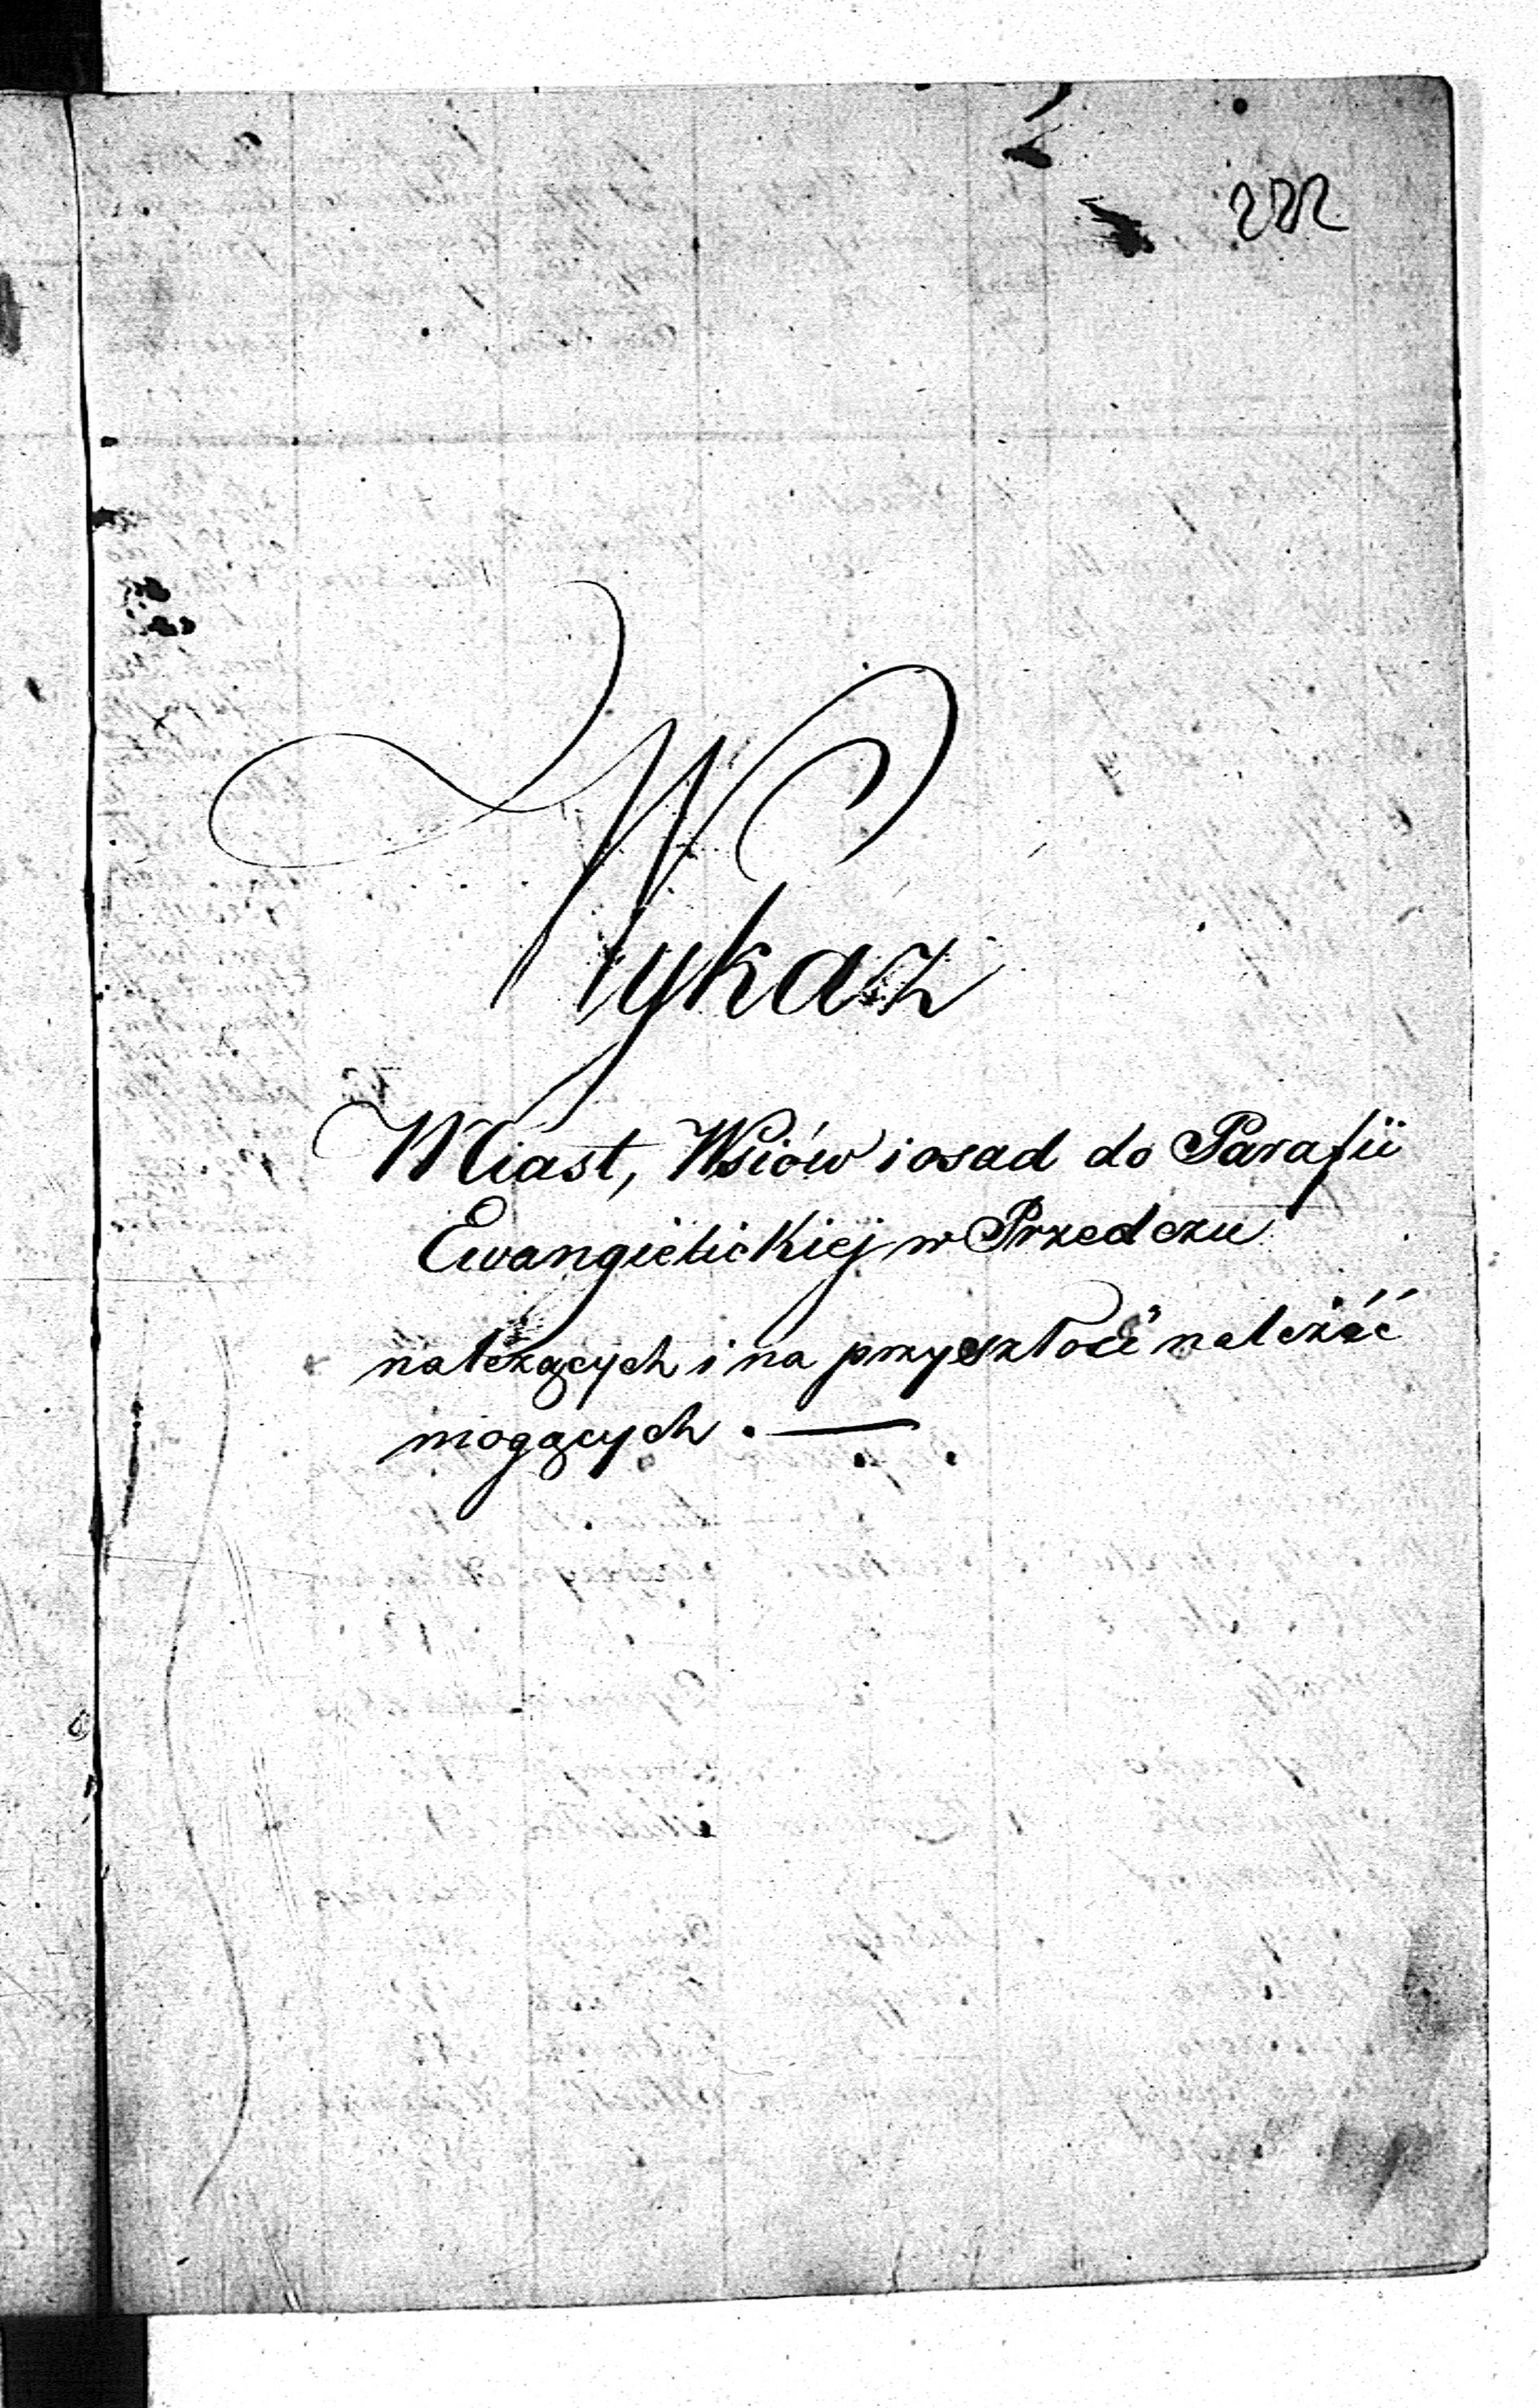 222
Wykaz
Miast, Wsiów i osad do Parafii
Ewangielickiej w Przedczu
należących i na przyszłość należéć
mogących . —